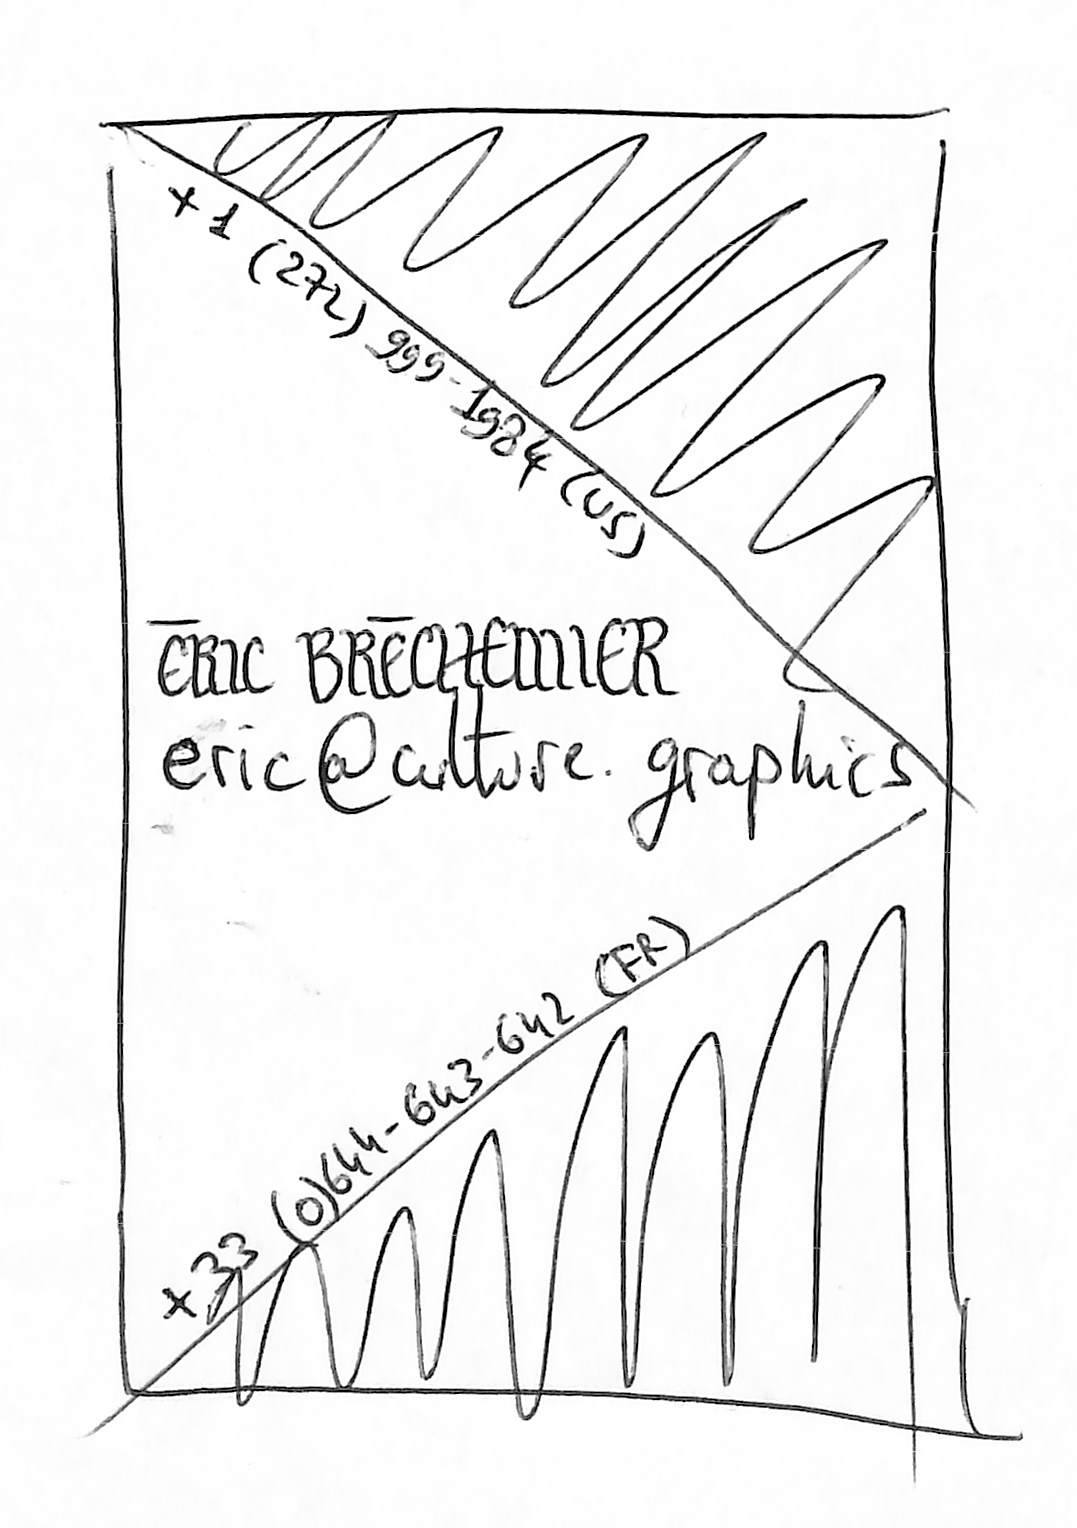 +1 (272) 999-1984 (US)
ĒRIC BRĒCHEMIER
eric@culture.graphics
+33 (0)644-643-642 (FR)